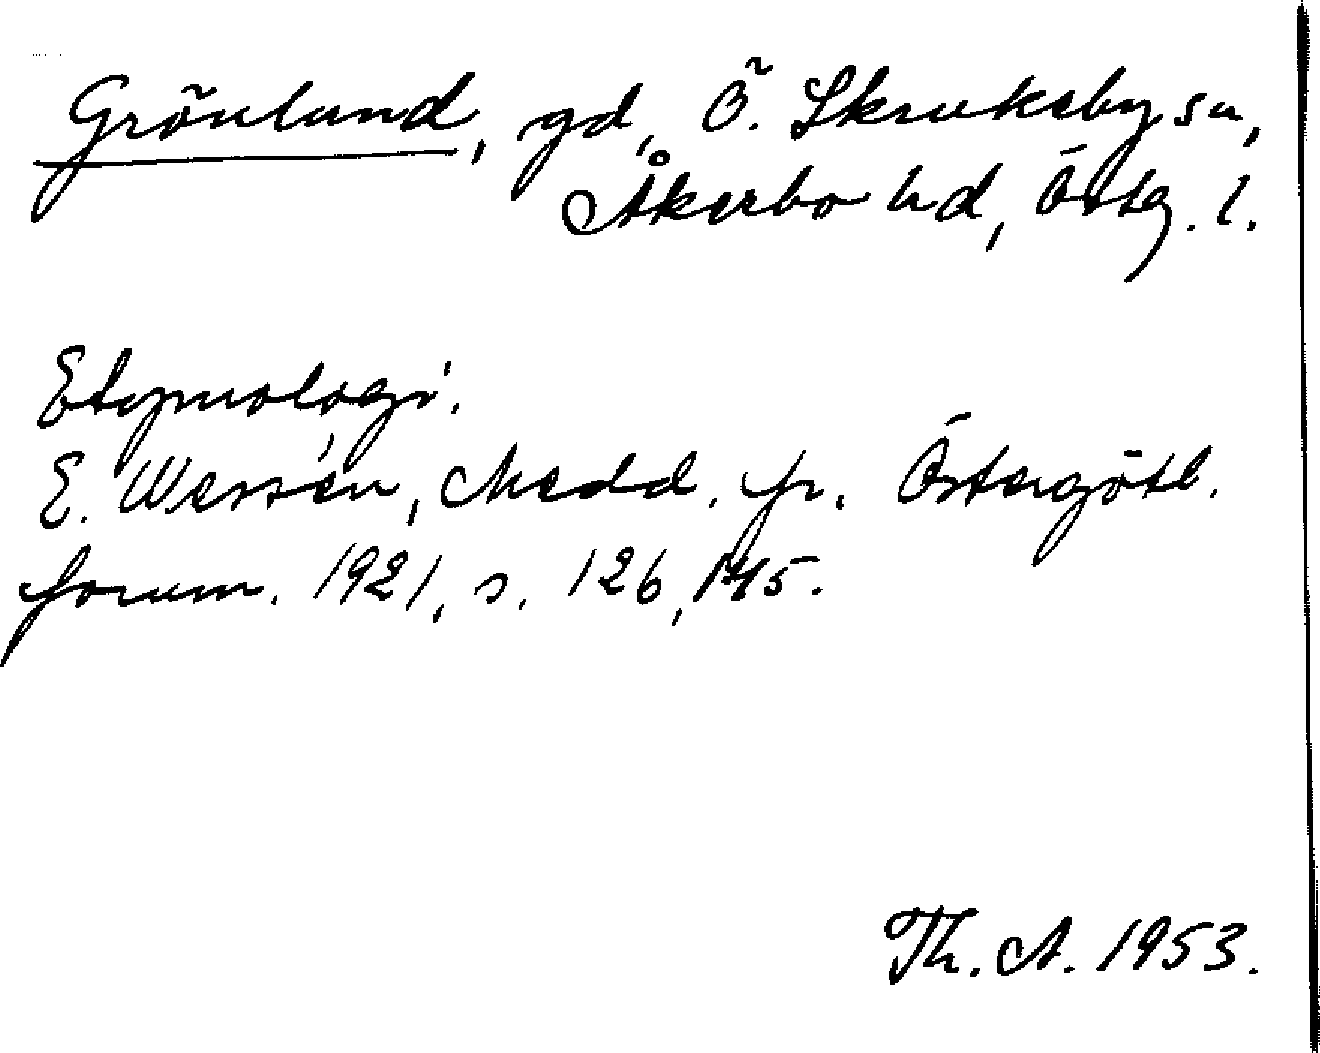 Grönlund, gd, Ö. Skrukeby sn,
Åkerbo hd, Östg. l.
Etymologi.
E. Wessén, Medd. fr. Östergötl.
fornm. 1921, s. 126, 145.
Th. A. 1953.